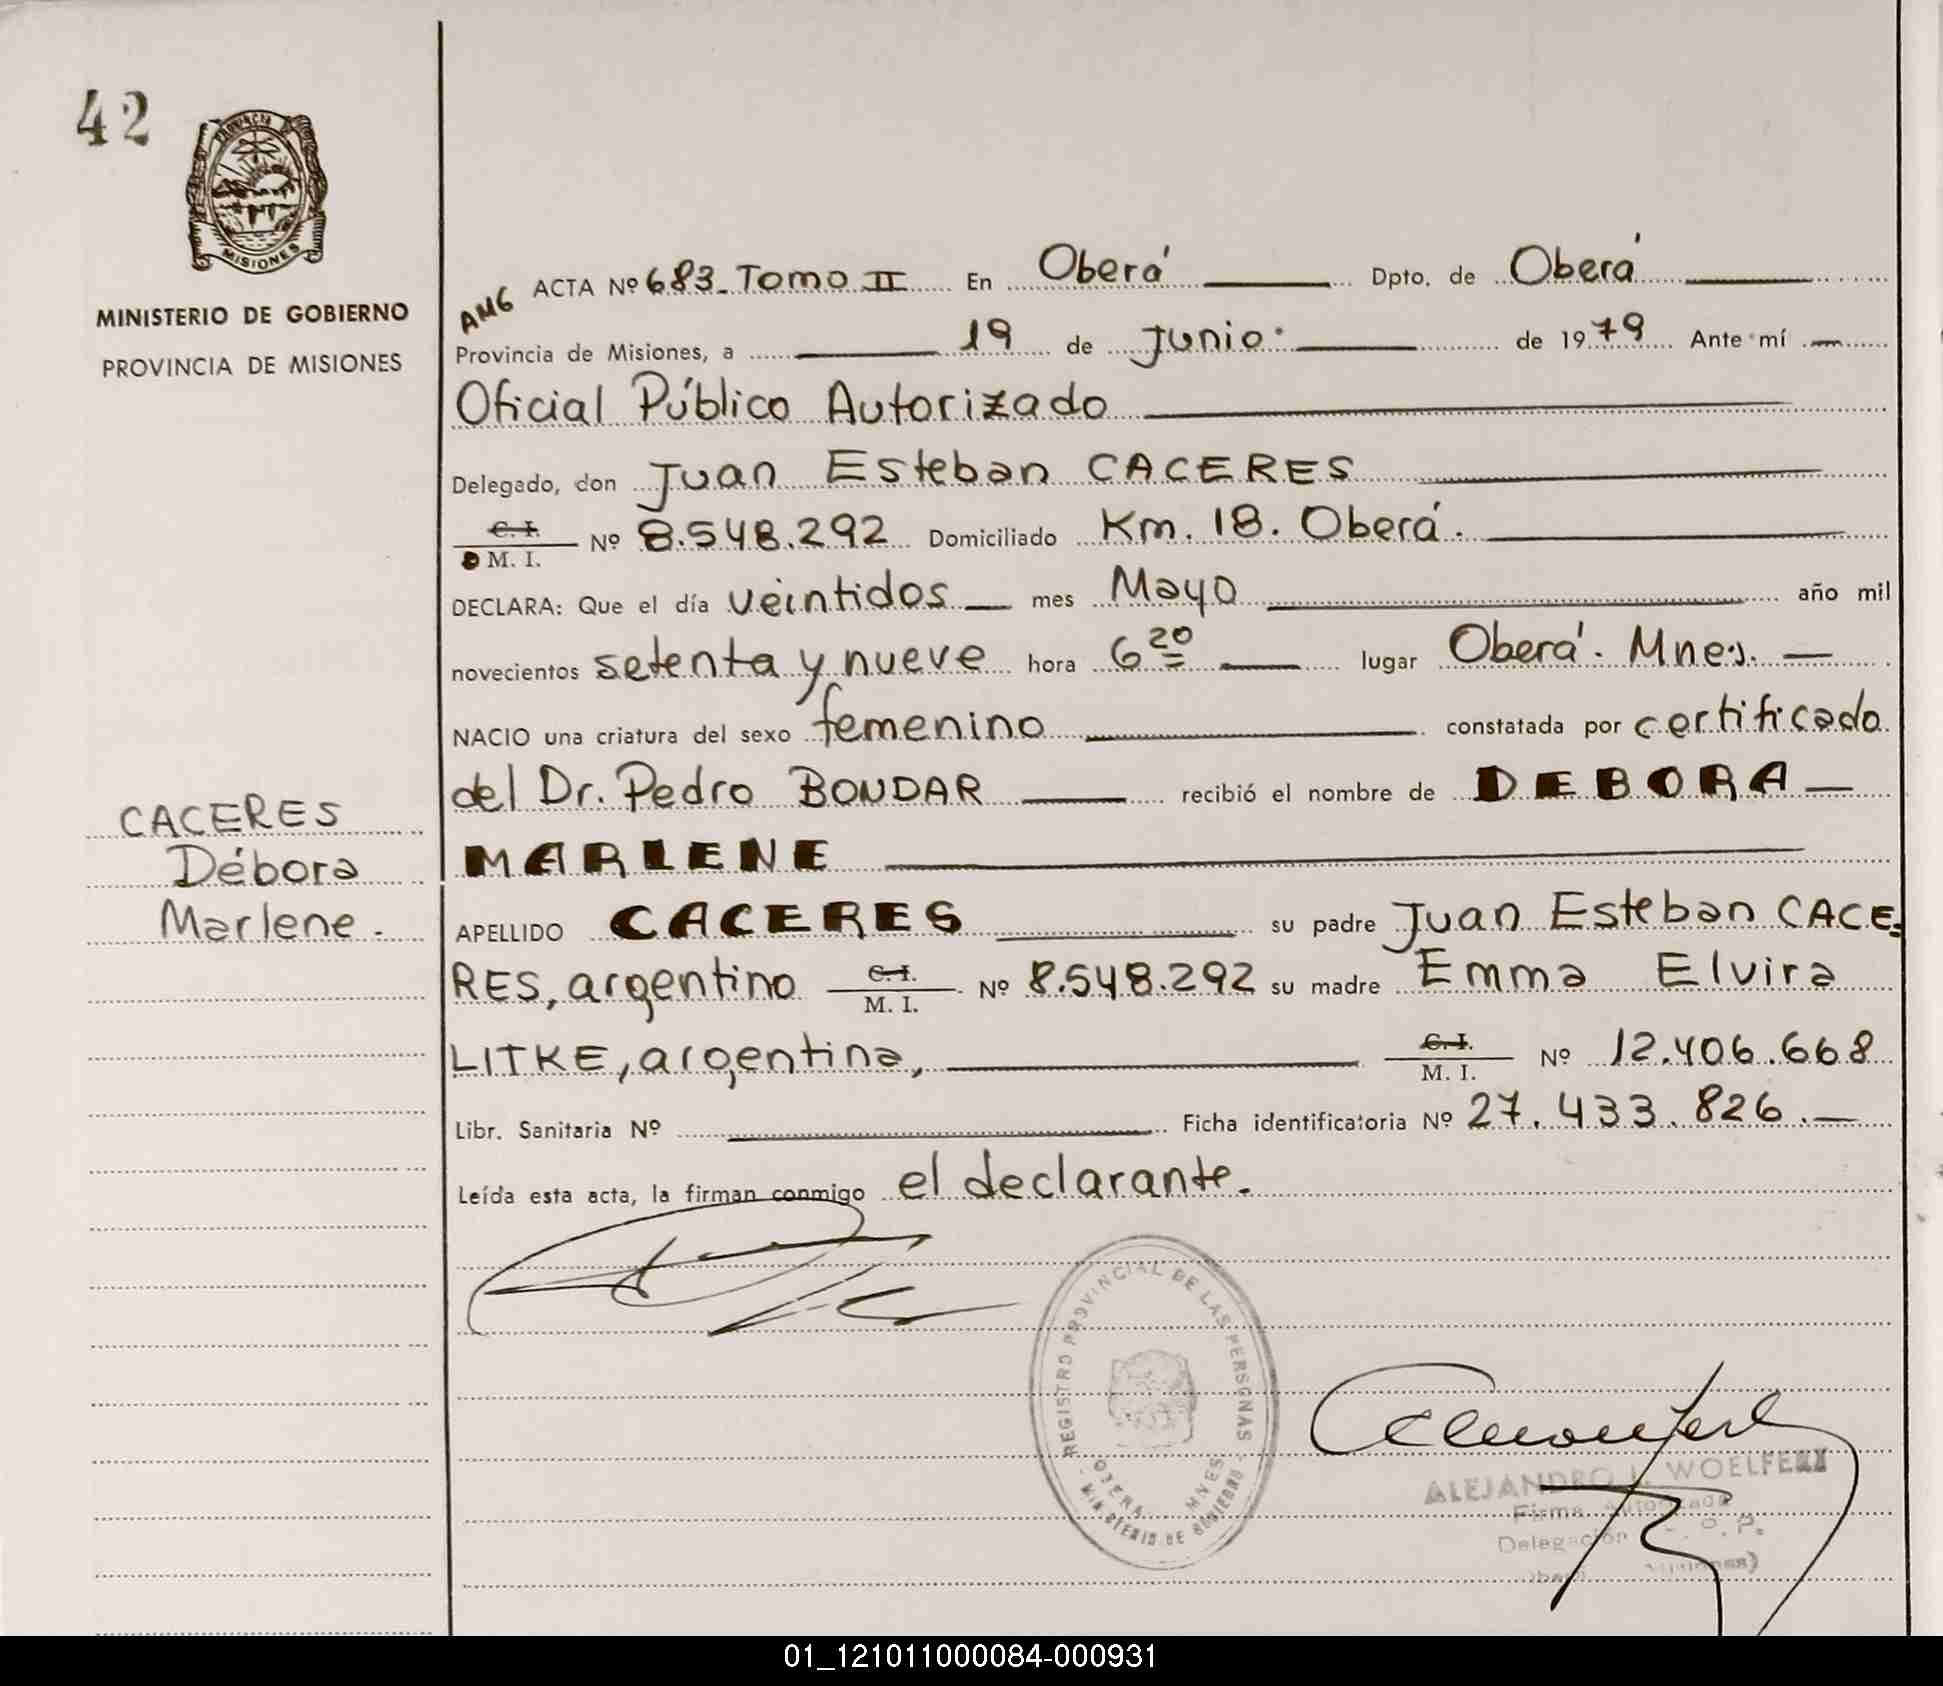 42
PROVINCIA
MISIONES
MINISTERIO DE GOBIERNO
PROVINCIA DE MISIONES
CACERES
Débora
Marlene.
AMG ACTA Nº 683_Tomo II En Oberá Dpto. de Oberá
Provincia de Misiones, a 19 de Junio. de 1979 Ante mí
Oficial Público Autorizado
Delegado, don Juan Esteban CACERES
C. I.
M. I. Nº 8.548.292 Domiciliado Km. 18. Oberá.
DECLARA: Que el día veintidos mes Mayo año mil
novecientos setenta y nueve hora 6 20 lugar Oberá. Mnes.
NACIO una criatura del sexo femenino constatada por certificado
del Dr. Pedro BONDAR recibió el nombre de DEBORA
MARLENE
APELLIDO CACERES su padre Juan Esteban CACE=
RES, argentino C. I. M. I. Nº 8.548.292 su madre Emma Elvira
LITKE, argentina, C. I. M. I. Nº 12.406.668
Libr. Sanitaria Nº Ficha identificatoria Nº 27.433.826.
Leída esta acta, la firman conmigo el declarante.
REGISTRO PROVINCIAL DE LAS PERSONAS
OBERA MNES
MINISTERIO DE GOBIERNO
ALEJANDRO L. WOELFERT
Firma Autorizada
Delegación
01_121011000084-000931